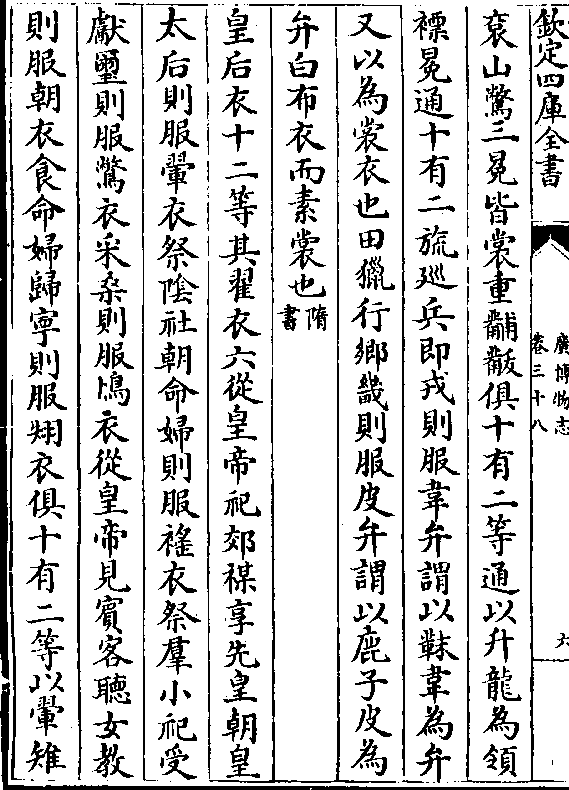 欽定四庫全書
廣博物志
卷三十八
六
袞山鷩三冕皆裳重黼黻俱十有二等通以升龍為領
褾冕通十有二旒廵兵即戎則服韋弁謂以韎韋為弁
又以為裳衣也田獵行鄉畿則服皮弁謂以鹿子皮為
弁白布衣而素裳也隋書
皇后衣十二等其翟衣六從皇帝祀郊禖享先皇朝皇
太后則服翬衣祭陰社朝命婦則服褕衣祭羣小祀受
獻璽則服鷩衣采桑則服鳲衣從皇帝見賓客聽女教
則服朝衣食命婦歸寧則服翙衣俱十有二等以翬雉